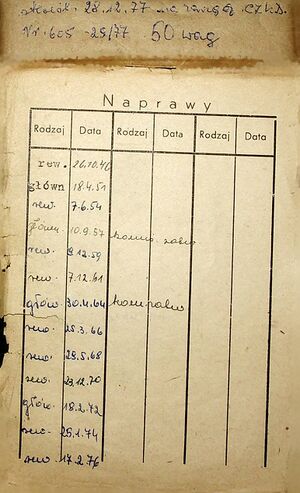 28.12.77
Nr. 605-25/77 50 wag
Naprawy
Rodzaj Data Rodzaj Data Rodzaj Data
rew. 26.10.46
główn 18.4.51
rew. 7.6.54
główn 10.9.57
rew. 9.12.59
rew. 7.12.61
głów. 30.4.64
rew. 25.3.66
rew. 28.5.68
rew. 29.12.70
głów. 18.2.72
rew. 25.1.74
rew 17.2.76